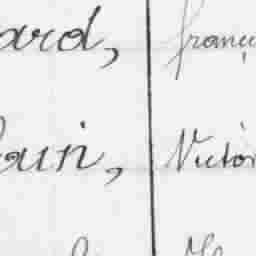 ard, franç
ouin, Victor